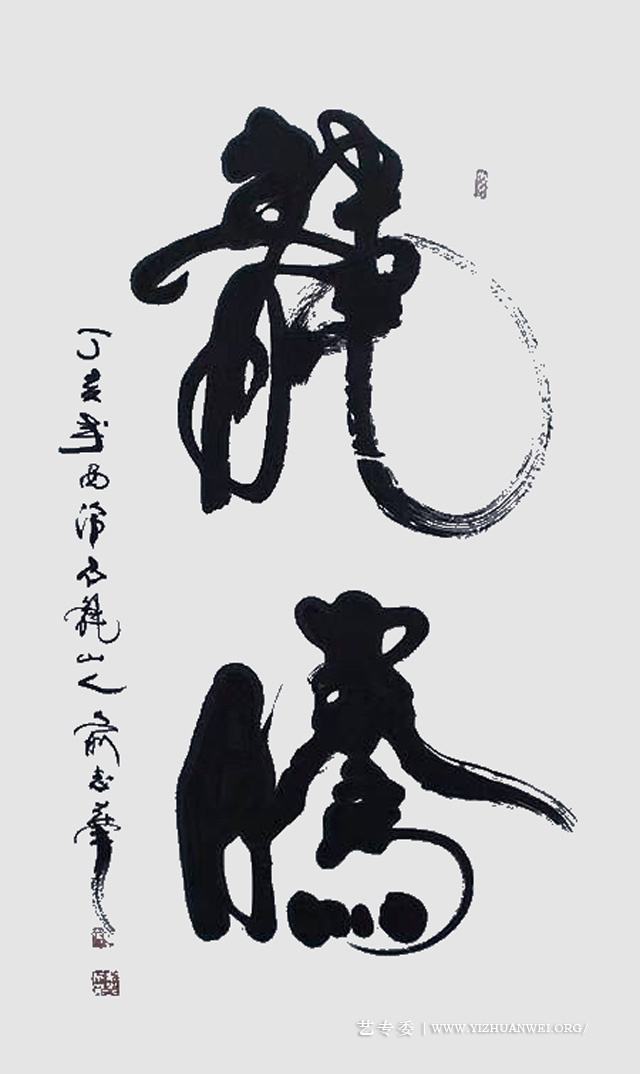 龍騰
丁亥年西龍山人俞志華
艺专委 | WWW.YIZHUANWEI.ORG/